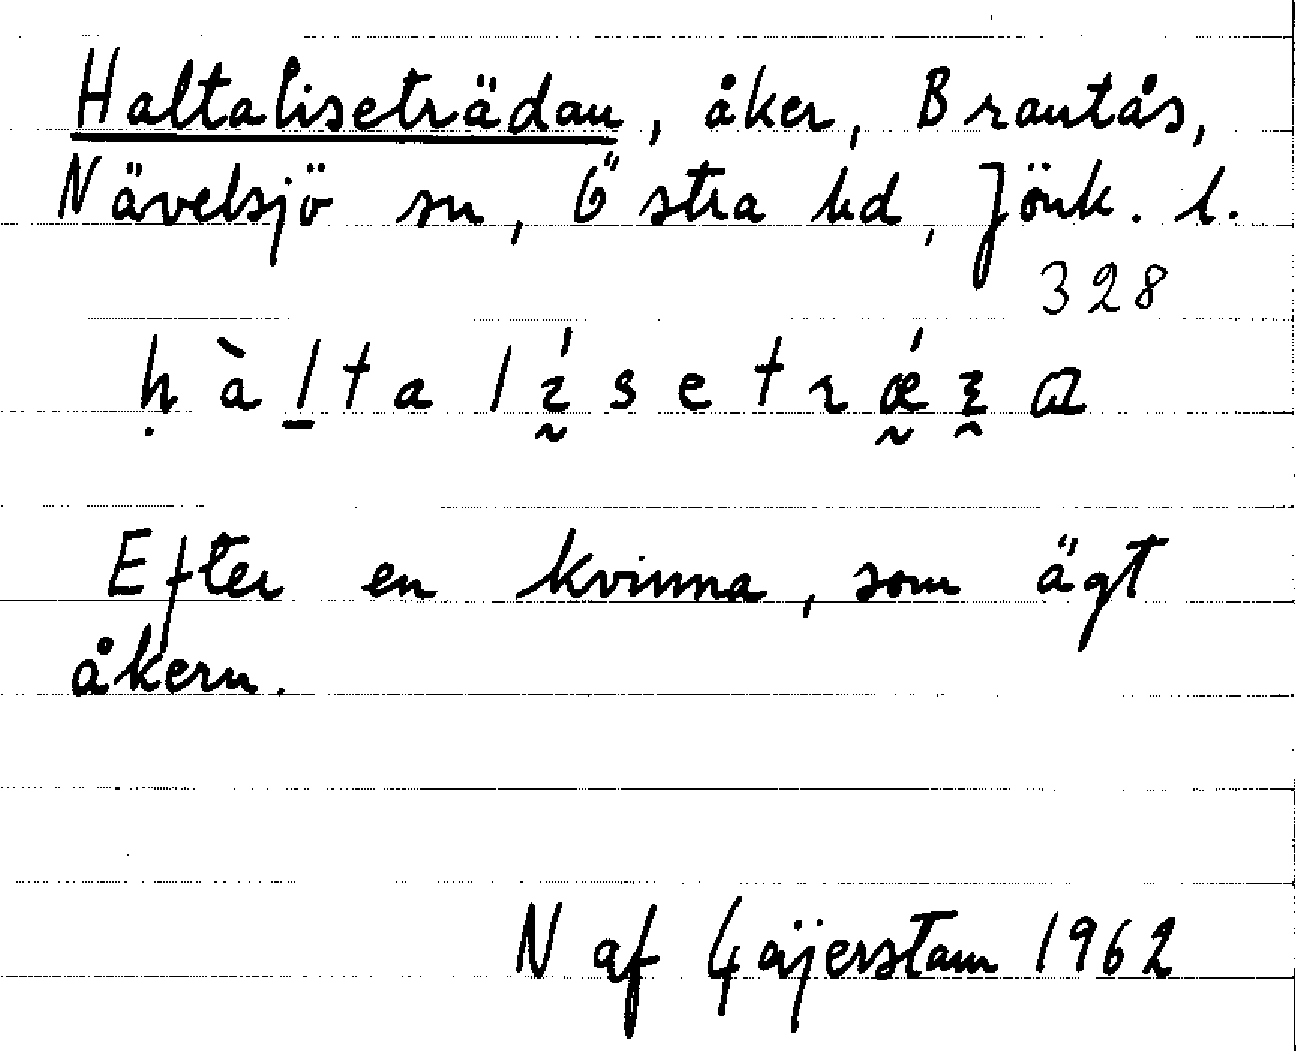 Haltaliseträdan, åker, Brantås,
Nävelsjö sn, Östra hd, Jönk. l.
328
Efter en kvinna, som ägt
åkern.
N af Gäijerstam 1962